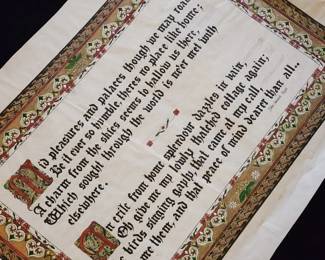 id pleasures and palaces though we may roa
Be it ever so humble, theres no place like home;
A charm from the skies seems to hallow us there,
Which sought through the world is neer met with
elsewhere.
exile from home splendom dazzles in vain,
Oh give me my lowly thatched cottage again;
e birds singing gayly, that came at my call,
me them, and that peace of mind dearer than all..